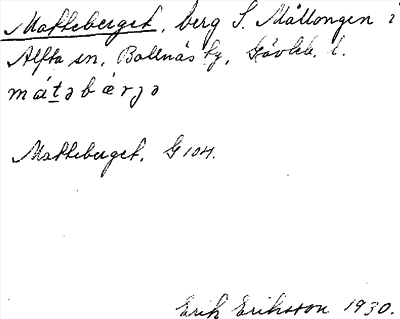 Matteberget, berg S. Mållongen i
Alfta sn, Bollnäs tg, Gävleb. l.
mátəbærjə
Matteberget. G 104.
Erik Eriksson 1930.